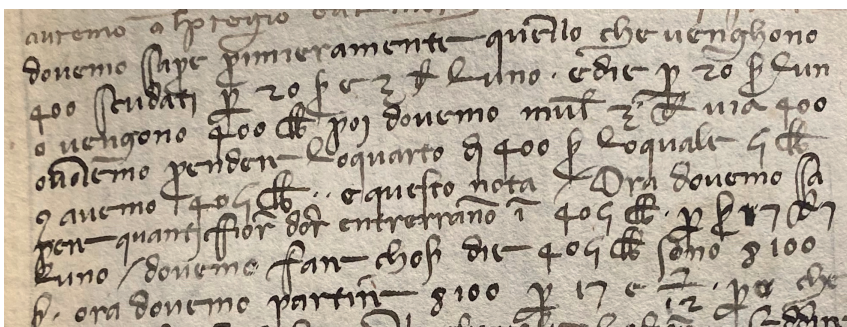 avremo
dovemo sapere primieramente quello che venghono
400 scudati p 20 ß e 3 d luno · e die p 20 ß lun
o vengono 400 lb poi dovemo mul 3 d via 400
o volemo prender lo quarto di 400 ß lo quale 5 lb
avemo 405 lb · e questo nota / Ora dovemo sa
per quanti fior dor entrerrano i 405 lb · p ß 17 d 7
luno / dovemo far chosi die 405 lb sono 8100
ß · ora dovemo partire 8100 p 17 e 7/12 · per che